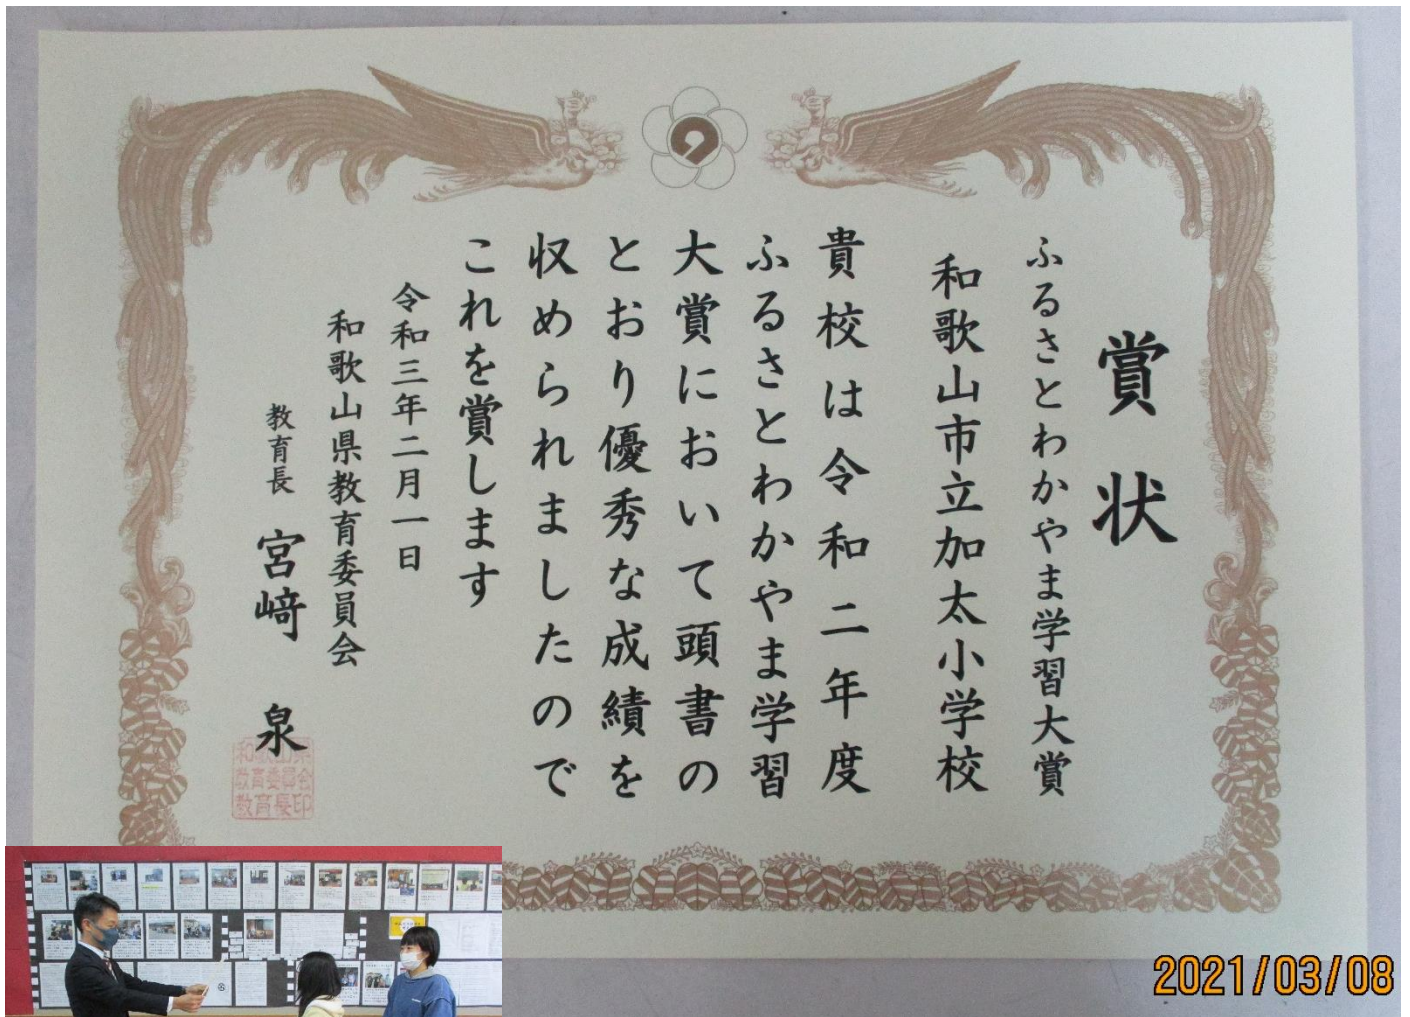 賞状
ふるさとわかやま学習大賞
和歌山市立加太小学校
貴校は令和二年度
ふるさとわかやま学習
大賞において頭書の
とおり優秀な成績を
収められましたので
これを賞します
令和三年二月一日
和歌山県教育委員会
教育長 宮﨑 泉
和歌山県
教育委員会
教育長印
2021/03/08